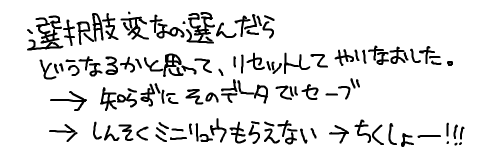 選択肢変なの選んだら
どうなるかと思って、リセットしてやりなおしました。
→ 知らずにそのデータでセーブ
→ しんそくミニリュウもらえない → ちくしょー!!!